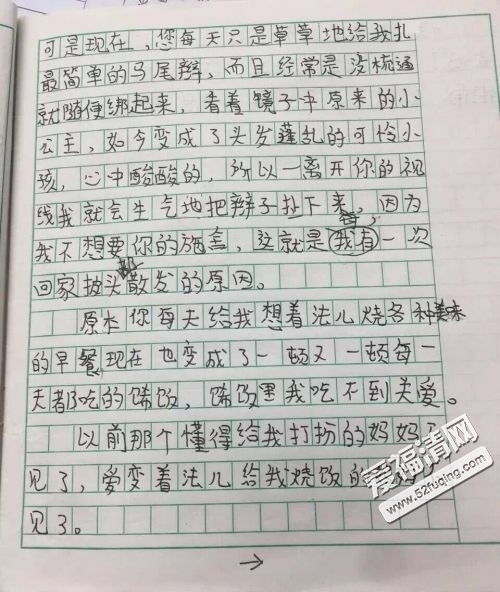 可是现在，您每天只是草草地给我扎
最简单的马尾辫，而且经常是没梳通
就随便绑起来，看着镜子中原来的小
公主，如今变成了头发蓬乱的可怜小
孩，心中酸酸的，所以一离开你的视
线我就会生气地把辫子扯下来，因为
我不想要你的施舍，这就是我有一次
回家披头散发的原因。
原本你每天给我想着法儿烧各种美味
的早餐现在也变成了一顿又一顿每一
天都吃的馊饭，馊饭里我吃不到关爱。
以前那个懂得给我打扮的妈妈
见了，爱变着法儿给我烧饭的
见了。
→
爱福清网
www.52fuqing.com